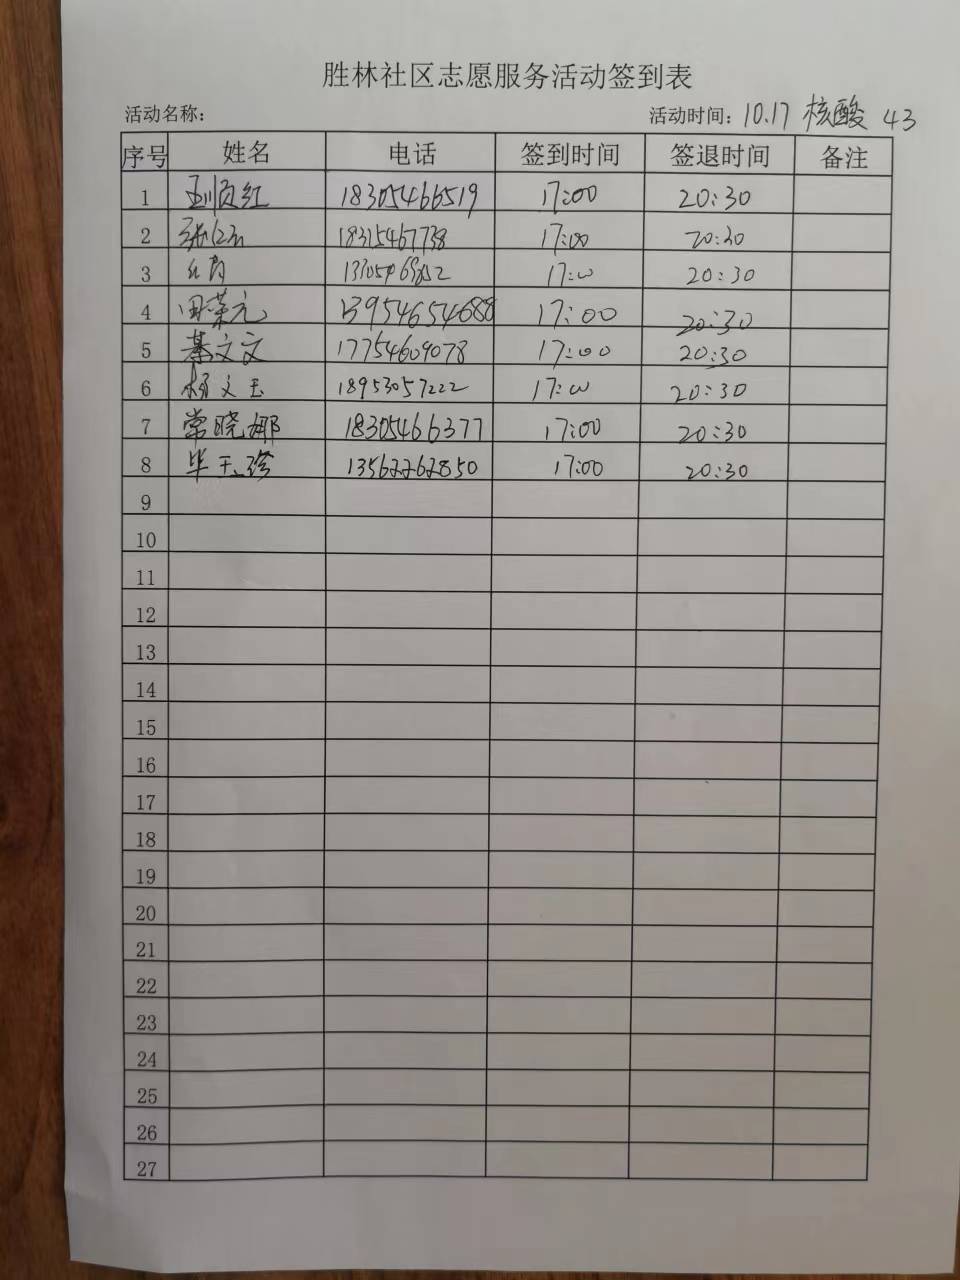 胜林社区志愿服务活动签到表
活动名称： 活动时间：10.17 核酸 43
序号 姓名 电话 签到时间 签退时间 备注
1 王顺红 18305466519 17:00 20:30
2 18315467738 17:00 20:30
3 17:00 20:30
4 田荣元 13954654688 17:00 20:30
5 綦文文 17754609078 17:00 20:30
6 杨文玉 18953057222 17:00 20:30
7 常晓娜 18305466377 17:00 20:30
8 毕玉珍 13562262850 17:00 20:30
9
10
11
12
13
14
15
16
17
18
19
20
21
22
23
24
25
26
27